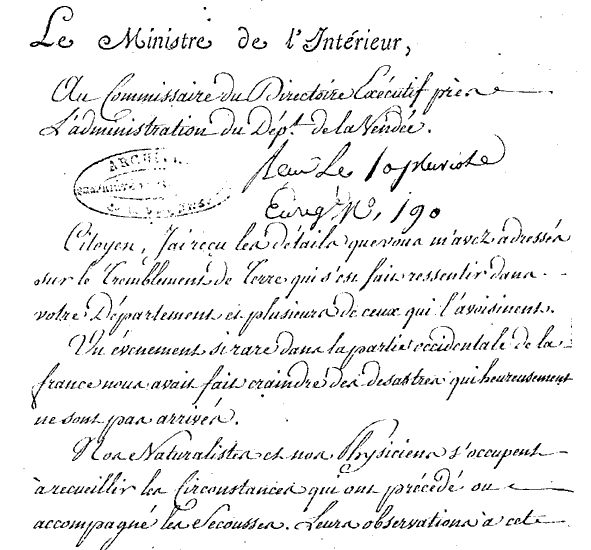 Le Ministre de l'Intérieur,
Au Commissaire du Directoire Exécutif près
L'administration du Dépt. de la Vendée.
ARCHI
Reçu Le 10 pluviose
Enregé No. 190
Citoyen, J'ai reçu les détails que vous m'avez adressés
sur le Tremblement de Terre qui s'est fait ressentir dans
votre Département et plusieurs de ceux qui l'avoisinent.
Un évenement si rare dans la partie occidentale de la
france nous avait fait craindre des desastres qui heureusement
ne sont pas arrivés.
Nos Naturalistes et nos Physiciens s'occupent
à recueillir les Circonstances qui ont précédé ou
accompagné les Secousses. Leurs observations à cet